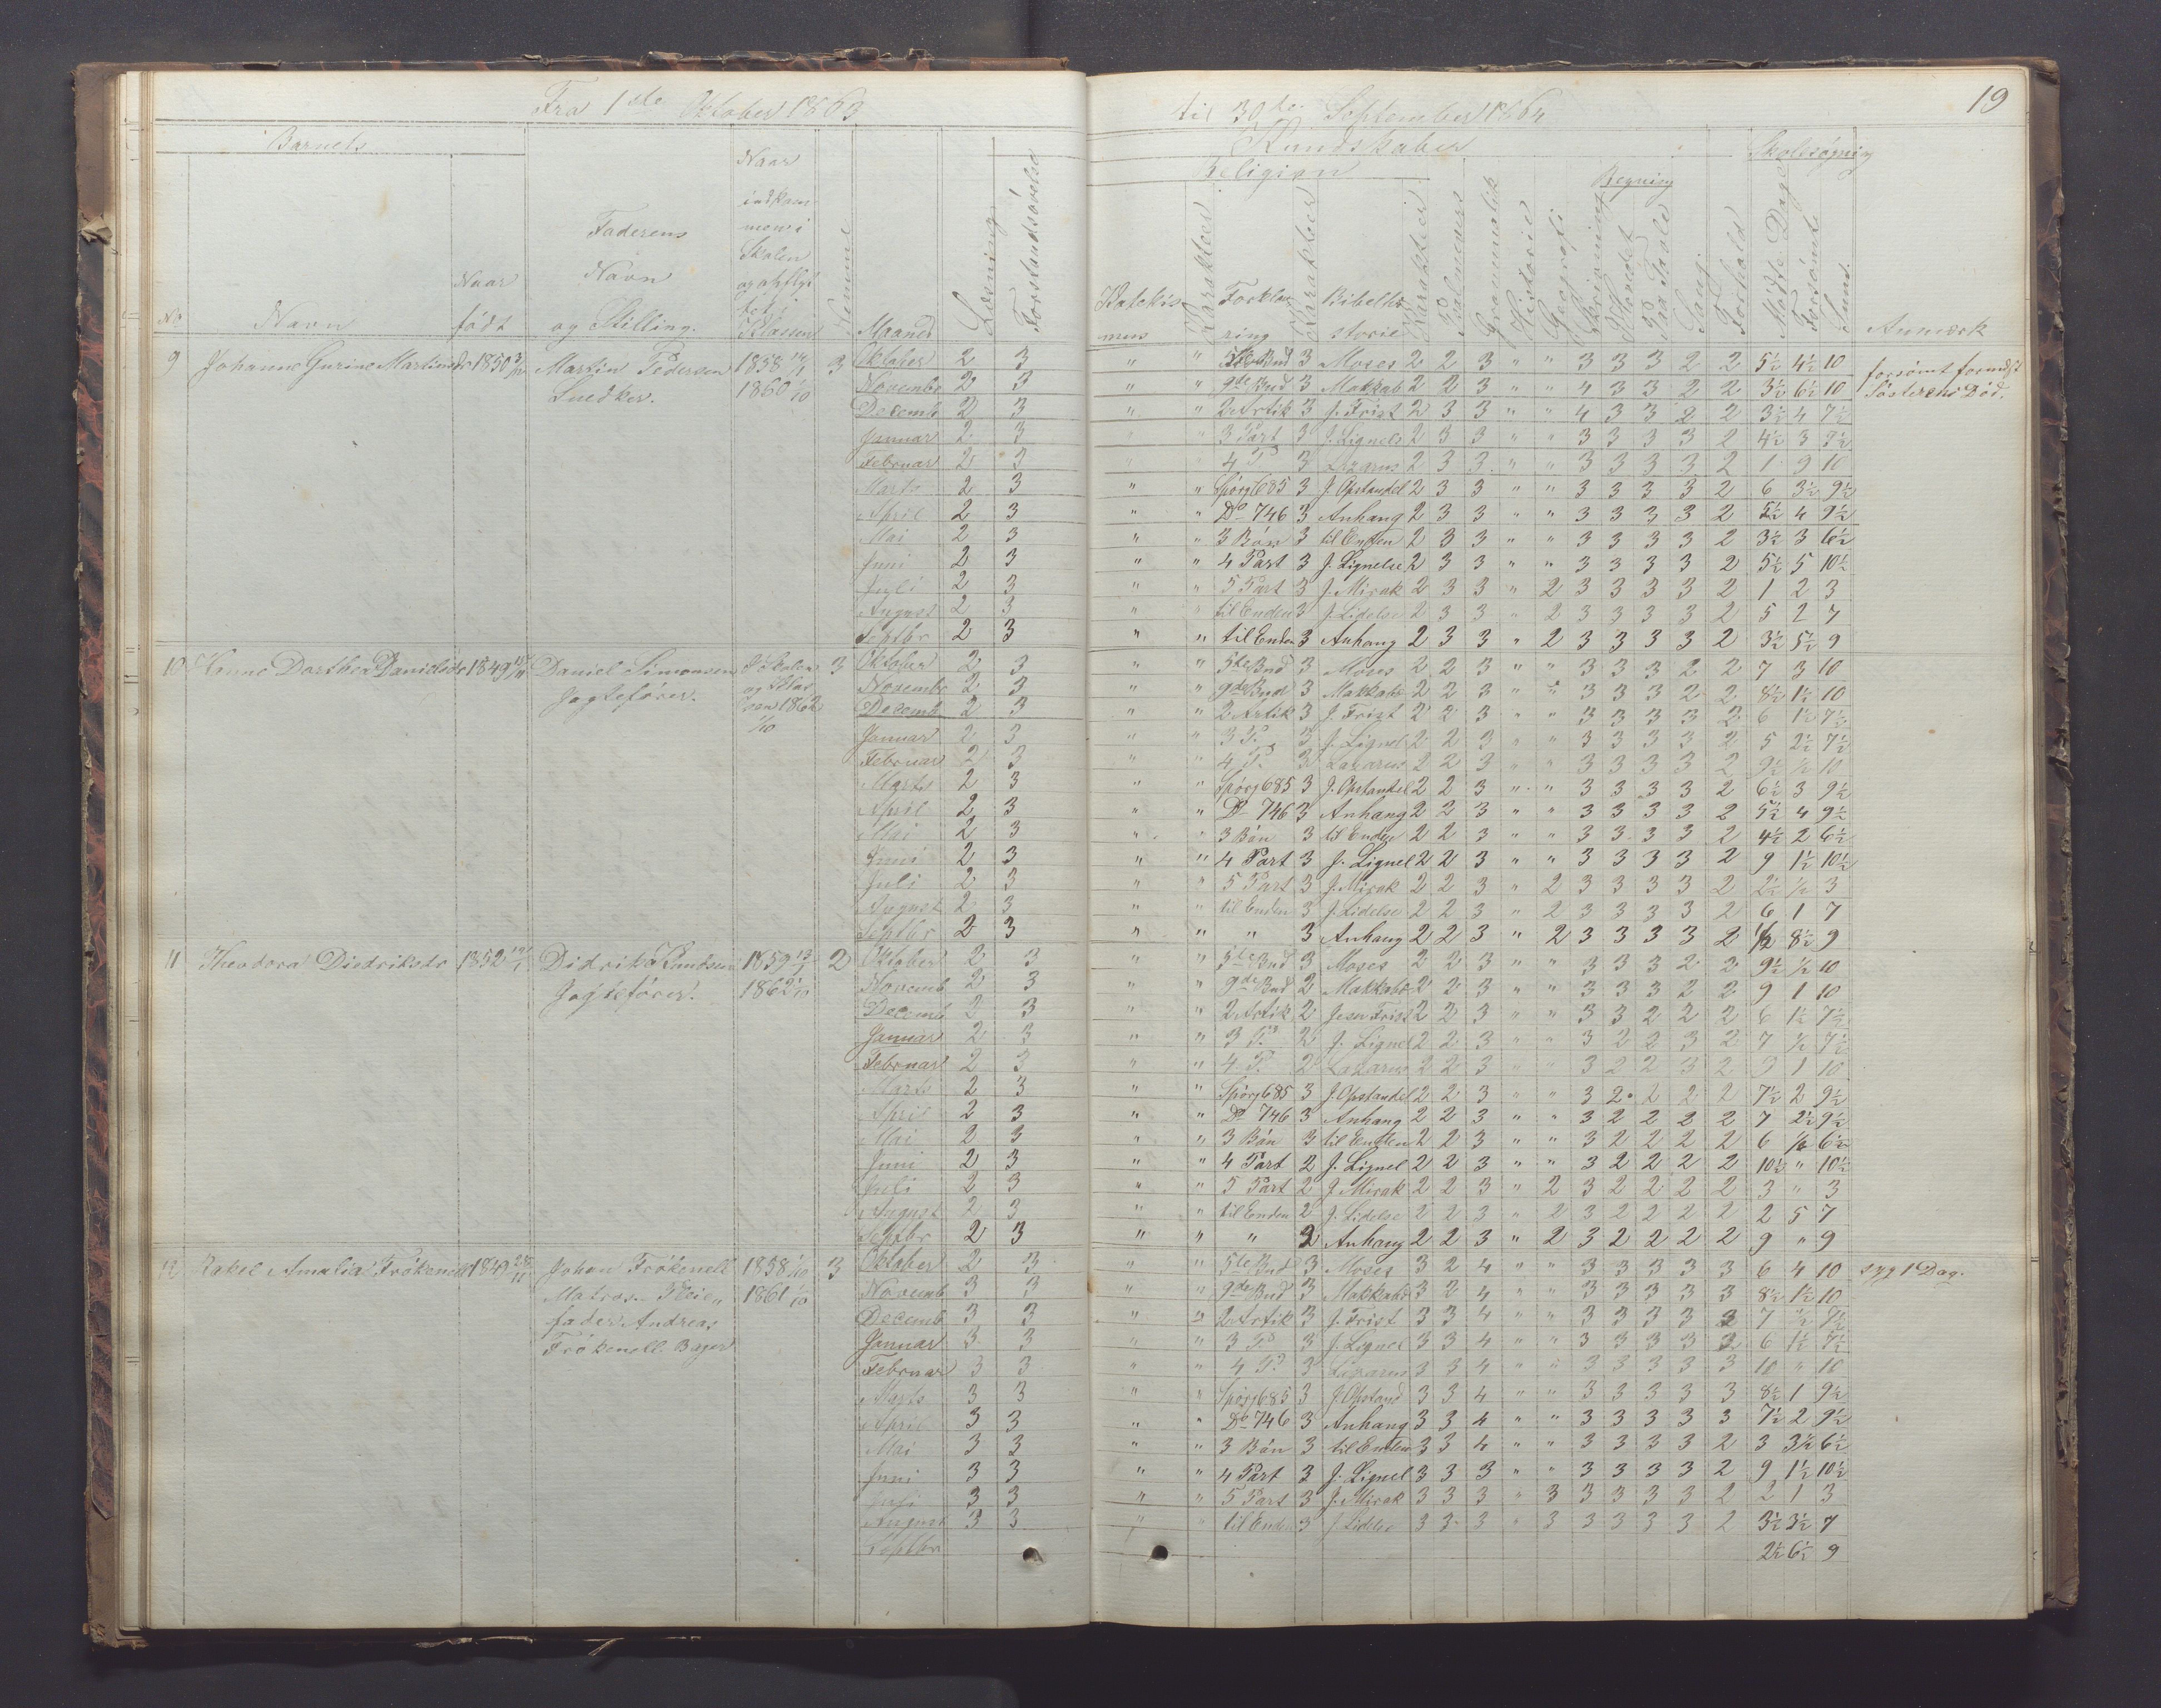 Fra 1ste Oktober 1863
til 30te September 1864
19
Barnets
Kundskaber
Skolesøgning
Religion
Regning
No
Navn
Naar født
Faderens Navn og Stilling.
Naar indkommen i Skolen og opflyttet i Klassen
Nemme
Maaned
Læsning
Forstandsøvelse
Katekismus
Karakter
Forklaring
Karakter
Bibelhistorie
Karakter
Psalmevers
Grammatik
Historie
Geografi
Skrivning
Hovedet
Paa Tavle
Sang
Forhold
Mødte Dage
Forsømte
Sum.
Anmærk
9 Johanne Gurine Martinsdr 1850 Martin Pedersen 1858 3 Oktober 2 3 " " 5te Bud 3 Moses 2 2 3 " " 3 3 3 2 2 5½ 4½ 10 forsømt formedelst
Snedker. 1860 1/10 Novembr 2 3 " " 9de Bud 3 Makkab 2 2 3 " " 4 3 3 2 2 3½ 6½ 10 Søsterens Død.
Decemb 2 3 " " 2 Artik 3 J. Frist 2 3 3 " " 4 3 3 2 2 3½ 4 7½
Januar 2 3 " " 3 Part 3 J. Lignels 2 3 3 " " 3 3 3 3 2 4½ 3 7½
Februar 2 3 " " 4 P. 3 Lazarus 2 3 3 " " 3 3 3 3 2 1 9 10
Marts 2 3 " " Spørg 685 3 J. Opstandel 2 3 3 " " 3 3 3 3 2 6 3½ 9½
April 2 3 " " Do 746 3 Anhang 2 3 3 " " 3 3 3 3 2 5½ 4 9½
Mai 2 3 " " 3 Bøn 3 til Enden 2 3 3 " " 3 3 3 3 2 3½ 3 6½
Juni 2 3 " " 4 Part 3 J. Lignelse 2 3 3 " " 3 3 3 3 2 5½ 5 10½
Juli 2 3 " " 5 Part 3 J. Mirak 2 3 3 " 2 3 3 3 3 2 1 2 3
August 2 3 " " til Enden 3 J. Lidelse 2 3 3 " 2 3 3 3 3 2 5 2 7
Septbr 2 3 " " til Enden 3 Anhang 2 3 3 " 2 3 3 3 3 2 3½ 5½ 9
10 Hanne Dorthea Danielsdr 1849 Daniel Simonsen I Skolen 3 Oktober 2 3 " " 5te Bud 3 Moses 2 2 3 " " 3 3 3 2 2 7 3 10
Jagtefører. og Klas Novembr 2 3 " " 9de Bud 3 Makkab 2 2 3 " " 3 3 3 2 2 8½ 1½ 10
sen 1862 Decemb 2 3 " " 2 Artik 3 J. Frist 2 2 3 " " 3 3 3 3 2 6 1½ 7½
1/10 Januar 2 3 " " 3 P. 3 J. Lignel 2 2 3 " " 3 3 3 3 2 5 2½ 7½
Februar 2 3 " " 4 P. 3 Lazarus 2 2 3 " " 3 3 3 3 2 9½ ½ 10
Marts 2 3 " " Spørg 685 3 J. Opstandel 2 2 3 " " 3 3 3 3 2 6½ 3 9½
April 2 3 " " Do 746 3 Anhang 2 2 3 " " 3 3 3 3 2 5½ 4 9½
Mai 2 3 " " 3 Bøn 3 til Enden 2 2 3 " " 3 3 3 3 2 4½ 2 6½
Juni 2 3 " " 4 Part 3 J. Lignel 2 2 3 " " 3 3 3 3 2 9 1½ 10½
Juli 2 3 " " 5 Part 3 J. Mirak 2 2 3 " 2 3 3 3 3 2 2½ ½ 3
August 2 3 " " til Enden 3 J. Lidelse 2 2 3 " 2 3 3 3 3 2 6 1 7
Septbr 2 3 " " " 3 Anhang 2 2 3 " 2 3 3 3 3 2 ½ 8½ 9
11 Theodora Diedriksdr 1852 Didrik Knudsen 1859 2 Oktober 2 3 " " 5te Bud 3 Moses 2 2 3 " " 3 3 3 2 2 9½ ½ 10
Jagtefører. 1862 1/10 Novemb 2 3 " " 9de Bud 2 Makkab 2 2 3 " " 3 3 3 2 2 9 1 10
Decemb 2 3 " " 2 Artik 2 Jesu Frist 2 2 3 " " 3 3 2 2 2 6 1½ 7½
Januar 2 3 " " 3 P. 2 J. Lignel 2 2 3 " " 3 2 2 3 2 7 ½ 7½
Februar 2 3 " " 4 P. 2 Lazarus 2 2 3 " " 3 2 2 3 2 9 1 10
Marts 2 3 " " Spørg 685 3 J. Opstandel 2 2 3 " " 3 2 2 2 2 7½ 2 9½
April 2 3 " " Do 746 3 Anhang 2 2 3 " " 3 2 2 2 2 7 2½ 9½
Mai 2 3 " " 3 Bøn 3 til Enden 2 2 3 " " 3 2 2 2 2 6 ½ 6½
Juni 2 3 " " 4 Part 2 J. Lignel 2 2 3 " " 3 2 2 2 2 10½ " 10½
Juli 2 3 " " 5 Part 2 J. Mirak 2 2 3 " 2 3 2 2 2 2 3 " 3
August 2 3 " " til Enden 2 J. Lidelse 2 2 3 " 2 3 2 2 2 2 2 5 7
Septbr 2 3 " " " 2 Anhang 2 2 3 " 2 3 2 2 2 2 9 " 9
12 Rakel Amalia Frökenell 1849 Johan Frökenell 1858 1/10 3 Oktober 2 3 " " 5te Bud 3 Moses 3 2 4 " " 3 3 3 3 3 6 4 10 syg 1 Dag.
Matros. Pleie„ 1861 1/10 Novemb 3 3 " " 9de Bud 3 Makkab 3 2 4 " " 3 3 3 3 3 8½ 1½ 10
fader Andreas Decemb 3 3 " " 2 Artik 3 J. Frist 3 3 4 " " 3 3 3 3 3 7 ½ 7½
Frökenell Bager Januar 3 3 " " 3 P. 3 J. Lignel 3 3 4 " " 3 3 3 3 3 6 1½ 7½
Februar 3 3 " " 4 P. 3 Lazarus 3 3 4 " " 3 3 3 3 3 10 " 10
Marts 3 3 " " Spørg 685 3 J. Opstand 3 3 4 " " 3 3 3 3 3 8½ 1 9½
April 3 3 " " Do 746 3 Anhang 3 3 4 " " 3 3 3 3 3 7½ 2 9½
Mai 3 3 " " 3 Bøn 3 til Enden 3 3 4 " " 3 3 3 3 2 3 3½ 6½
Juni 3 3 " " 4 Part 3 J. Lignel 3 3 3 " " 3 3 3 3 2 9 1½ 10½
Juli 3 3 " " 5 Part 3 J. Mirak 3 3 3 " 3 3 3 3 3 2 2 1 3
August 3 3 " " til Enden 3 J. Lidelse 3 3 3 " 3 3 3 3 3 2 3½ 3½ 7
Septbr 2½ 6½ 9